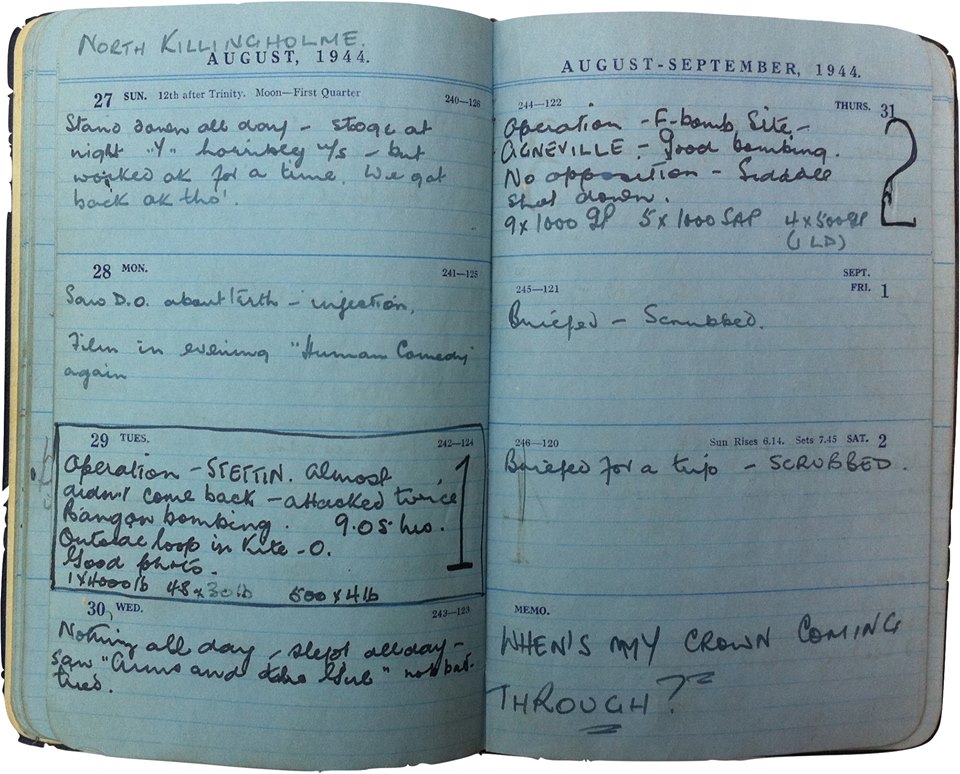 NORTH KILLINGHOLME.
AUGUST, 1944.
27 SUN. 12th after Trinity. Moon—First Quarter 240—126
Stand down all day – stooge at
night "Y" horribly u/s – but
worked ok for a time. We got
back ok tho'.
28 MON. 241—125
Saw D.O. about teeth – injection.
Film in evening "Human Comedy"
again
29 TUES. 242—124
Operation – STETTIN. Almost
didn't come back – attacked twice
Bangon bombing. 9.05 hrs.
Outside loop in Kite – O.
Good photo.
1x4000lb 48x30lb 500x4lb
1
30 WED. 243—123
Nothing all day – slept all day –
saw "Arms and the Girl" not bad
tho'.
AUGUST-SEPTEMBER, 1944.
244—122 THURS. 31
Operation – F-bomb Site –
AGNEVILLE – Good bombing.
No opposition – Siddall
shot down.
9x1000 GP 5x1000 SAP 4x500 GP
(1 LD)
2
SEPT.
245—121 FRI. 1
Briefed – Scrubbed.
246—120 Sun Rises 6.14. Sets 7.45 SAT. 2
Briefed for a trip – SCRUBBED.
MEMO.
WHEN'S MY CROWN COMING
THROUGH?